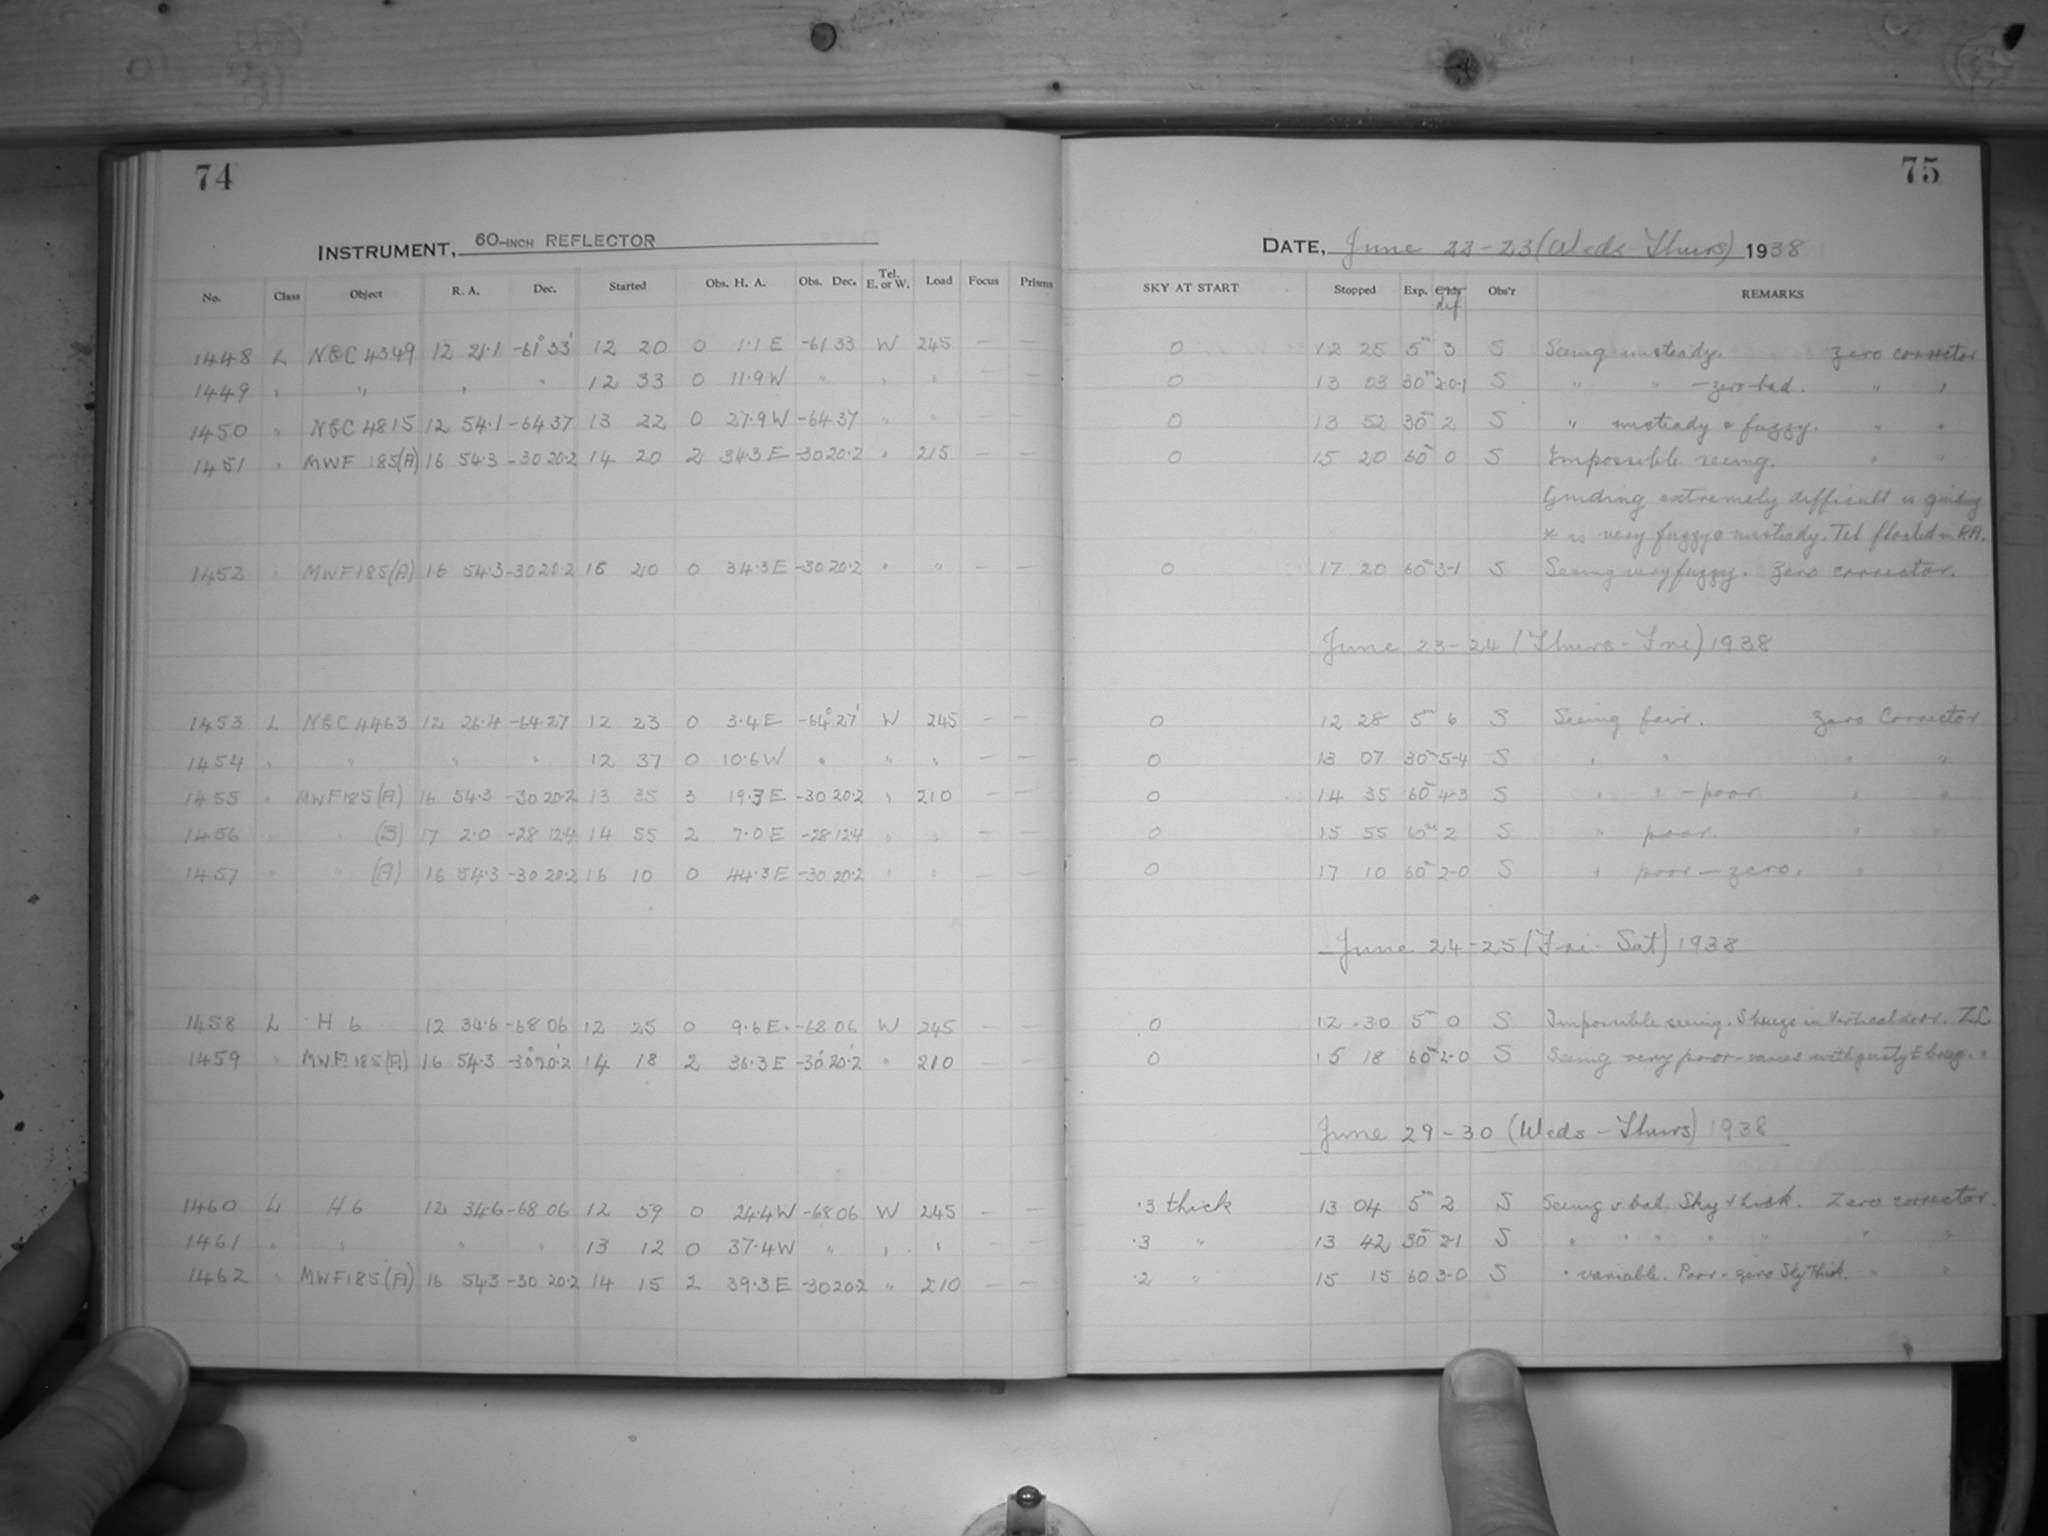 74
75
INSTRUMENT, 60-INCH REFLECTOR
DATE, June 22-23 (Weds-Thurs) 1938
No. Class Object R. A. Dec. Started Obs. H. A. Obs. Dec. Tel. E. or W. Load Focus Prisms SKY AT START Stopped Exp. Obs'r REMARKS
1448 L NGC 4349 12 21.1 -61° 33' 12 20 0 1.1 E -61 33 W 245 — — 0 12 25 5m 3 S Seeing unsteady. Zero corrector
1449 " " " " 12 33 0 11.9 W " " " — — 0 13 03 30m 2-0-1 S " " -zero-bad. " "
1450 " NGC 4815 12 54.1 -64 37 13 22 0 27.9 W -64 37 " " — — 0 13 52 30m 2 S " unsteady & fuzzy. " "
1451 " MWF 185(A) 16 54.3 -30 20.2 14 20 2 34.3 E -30 20.2 " 215 — — 0 15 20 60m 0 S Impossible seeing. " "
Guiding extremely difficult as guiding
* is very fuzzy & unsteady. Tel floated in RA.
1452 " MWF185(A) 16 54.3 -30 20.2 16 20 0 34.3 E -30 20.2 " " — — 0 17 20 60m 3-1 S Seeing very fuzzy. Zero corrector.
June 23-24 (Thurs-Fri) 1938
1453 L NGC 4463 12 26.4 -64 27 12 23 0 3.4 E -64° 27' W 245 — — 0 12 28 5m 6 S Seeing fair. Zero Corrector
1454 " " " " 12 37 0 10.6 W " " " — — 0 13 07 30m 5-4 S " " " "
1455 " MWF185(A) 16 54.3 -30 20.2 13 35 3 19.3 E -30 20.2 " 210 — — 0 14 35 60m 4-3 S " " -poor " "
1456 " " (B) 17 2.0 -28 12.4 14 55 2 7.0 E -28 12.4 " " — — 0 15 55 60m 2 S " poor. " "
1457 " " (A) 16 54.3 -30 20.2 16 10 0 44.3 E -30 20.2 " " — — 0 17 10 60m 2-0 S " poor-zero. " "
June 24-25 (Fri-Sat) 1938
1458 L H 6 12 34.6 -68 06 12 25 0 9.6 E -68 06 W 245 — — 0 12 30 5m 0 S Impossible seeing. in Vertical door. Z.C.
1459 " MWF185(A) 16 54.3 -30° 20.2 14 18 2 36.3 E -30° 20.2 " 210 — — 0 15 18 60m 2-0 S Seeing very poor-varies with gusty E breeze. "
June 29-30 (Weds-Thurs) 1938
1460 L H 6 12 34.6 -68 06 12 59 0 24.4 W -68 06 W 245 — — .3 thick 13 04 5m 2 S Seeing v bad. Sky thick. Zero corrector.
1461 " " " " 13 12 0 37.4 W " " " — — .3 " 13 42 30m 2-1 S " " " " " " "
1462 " MWF185(A) 16 54.3 -30 20.2 14 15 2 39.3 E -30 20.2 " 210 — — .2 " 15 15 60 3-0 S " variable. Poor-zero Sky Thick. " "